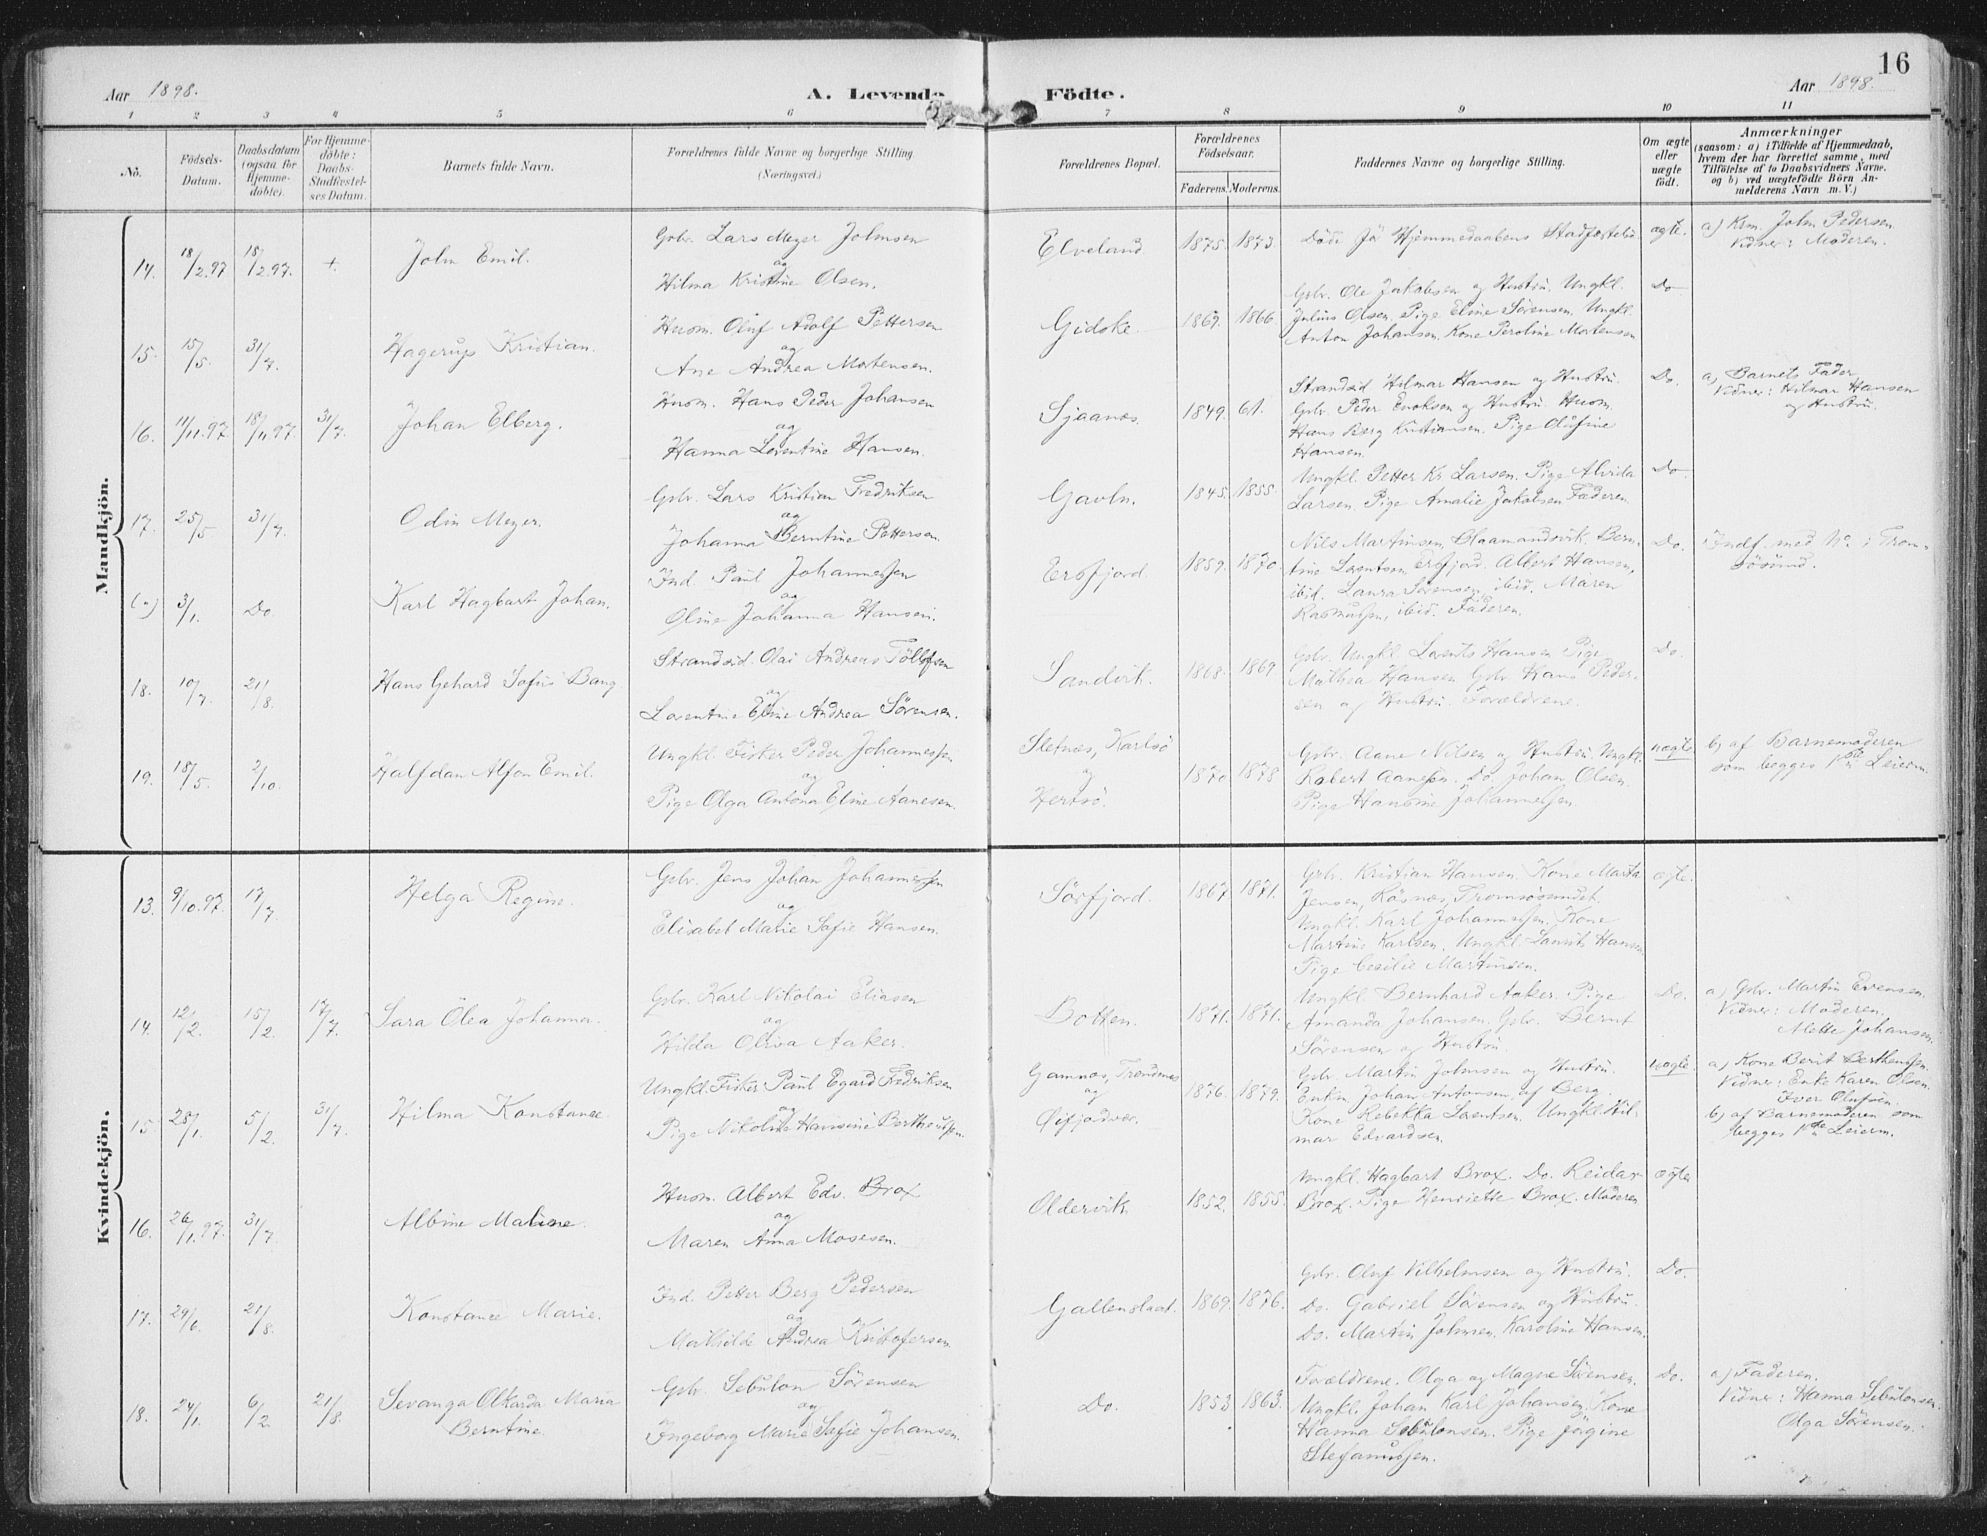 16
Aar 1898.
A. Levende Födte.
Aar 1898.
1 2 3 4 5 6 7 8 9 10 11
No.
Födsels-Datum.
Daabsdatum (ogsaa for Hjemme-döbte).
For Hjemme-döbte: Daabs-Stadfæstel-ses Datum.
Barnets fulde Navn.
Forældrenes fulde Navne og borgerlige Stilling (Næringsvei.)
Forældrenes Bopæl.
Forældrenes Födselsaar.
Faderens. Moderens.
Faddernes Navne og borgerlige Stilling.
Om ægte eller uægte födt.
Anmærkninger
(saasom: a) i Tilfælde af Hjemmedaab,
hvem der har forrettet samme, med
Tilföielse af to Daabsvidners Navne.
og b) ved uægtefödte Börn An-
melderens Navn m. V.)
Mandkjön.
14. 18/2.97 18/2.97. +. John Emil.
Gbr. Lars Meyer Johnsen
og
Hilma Kristine Olsen.
Elveland 1875. 1873.
Döde för Hjemmedaabens Stadfæstelse
ægte.
a) Krm. John Pedersen
Vidner: Moderen.
15. 15/5. 31/7. Hagerup Kristian.
Husm. Oluf Adolf Pettersen
og
Ane Andrea Mortensen.
Gidske. 1869. 1866
Gbr. Ole Jakobsen og Hustru. Ungkl.
Julius Olsen. Pige Eline Sörensen. Ungkl.
Anton Johansen. Kone Peroline Mortensen
Do
16. 11/11.97. 18/11.97. 31/7. Johan Elberg.
Husm. Hans Peder Johansen
og
Hanna Lorentine Hansen.
Sjaanæs. 1849. 61.
Strandsid Hilmar Hansen og Hustru.
Gbr. Peder Enoksen og Hustru. Husm.
Hans Berg Kristiansen. Pige Olufine
Hansen.
Do.
a) Barnets Fader
Vidner: Hilmar Hansen
og Hustru.
17. 25/5. 31/7. Odin Meyer.
Gbr. Lars Kristian Fredriksen
og
Johanna Berntine Pettersen.
Gavln. 1845. 1855.
Ungkl. Petter Kr. Larsen. Pige Alvida
Larsen. Pige Amalie Jakobsen. Faderen.
Do
3/1. Do. Karl Hagbart Johan.
Ind. Paul Johannessen
og
Oline Johanna Hansen.
Ersfjord. 1859. 1870.
Nils Martinsen, Blaamandsvik. Bern-
tine Lorentsen, Ersfjord. Albert Hansen,
ibid. Laura Sörensen, ibid. Maren
Rasmussen, ibid. Faderen.
Do.
Indf. med No. i Trom-
sösund.
18. 10/7. 21/8. Hans Gehard Sofus Bang
Strandsid. Olai Andreas Töllefsen
og
Lorentine Eline Andrea Sörensen.
Sandvik. 1868. 1869
Gbr. Ungkl. Laurits Hansen Pige
Mathea Hansen Gbr Hans Peder-
sen og Hustru. Forældrene.
Do.
19. 18/5. 2/10. Halfdan Alfon Emil.
Ungkl. Fisker Peder Johannessen
og
Pige Olga Antona Eline Aanesen.
Stefnæs, Karlsö
og
Hersö.
1870 1878
Gbr. Aane Nilsen og Hustru. Ungkl.
Robert Aanesen. Do. Johan Olsen.
Pige Hansine Johannessen.
uægte
b) af Barnemoderen
som begges 1ste Leierm.
Kvindekjön.
13. 9/10.97. 17/7. Helga Regine.
Gbr. Jens Johan Johannessen
og
Elisabet Marie Sofie Hansen.
Sörfjord. 1867 1871.
Gbr. Kristian Hansen. Kone Marta
Jensen, Röenæs, Tromsösundet.
Ungkl. Karl Johannessen. Kone
Martine Karlsen. Ungkl. Laurits Hansen
Pige Cecilie Martinsen.
ægte.
14. 12/2. 15/2. 17/7. Sara Olea Johanna.
Gbr. Karl Nikolai Eliasen
og
Hilda Oliva Aaker.
Botten. 1871. 1871.
Ungkl. Bernhard Aaker. Pige
Amanda Johansen. Gbr. Bernt
Sörensen og Hustru.
Do.
a) Gbr. Martin Evensen.
Vidner: Moderen.
Mette Johansen.
15. 28/1. 5/2. 31/7. Hilma Konstance
Ungkl. Fisker Paul Egard Fredriksen
og
Pige Nikoline Hansine Bertheussen.
Gamnæs, Trondenæs
og
Öifjordvær.
1876. 1879.
Gbr. Martin Johnsen og Hustru.
Enkm. Johan Antonsen, af Berg
Kone Rebekka Lorentsen. Ungkl. Hil-
mar Edvardsen.
uægte.
a) Kone Berit Bertheussen.
Vidner: Enke Karen Olsen.
Iver Olufsen.
b) af Barnemoderen som
begges 1ste Leierm.
16. 26/1.97. 31/7. Albine Maline.
Husm. Albert Edv. Brox
og
Maren Anna Mosesen.
Oldervik. 1852. 1855.
Ungkl. Hagbart Brox. Do. Reidar
Brox. Pige Henriette Brox. Moderen
ægte
17. 29/6. 21/8. Konstance Marie.
Ind. Petter Berg Pedersen
og
Mathilde Andrea Kristofersen.
Gallenslaat. 1869. 1876.
Gbr. Oluf Vilhelmsen og Hustru.
Do. Gabriel Sörensen og Hustru.
Do. Martin Johnsen. Karoline Hansen.
Do.
18. 24/1. 6/2. 21/8. Sevanga Olkarda Maria
Berntine.
Gbr. Sebulon Sörensen
og
Ingeborg Marie Sofie Johansen.
Do. 1853 1863.
Forældrene. Olga og Magne Sörensen.
Ungkl. Johan Karl Johansen, Kone
Hanna Sebulonsen. Pige Jörgine
Stefanussen.
Do.
a) Faderen.
Vidner: Hanna Sebulonsen.
Olga Sörensen.